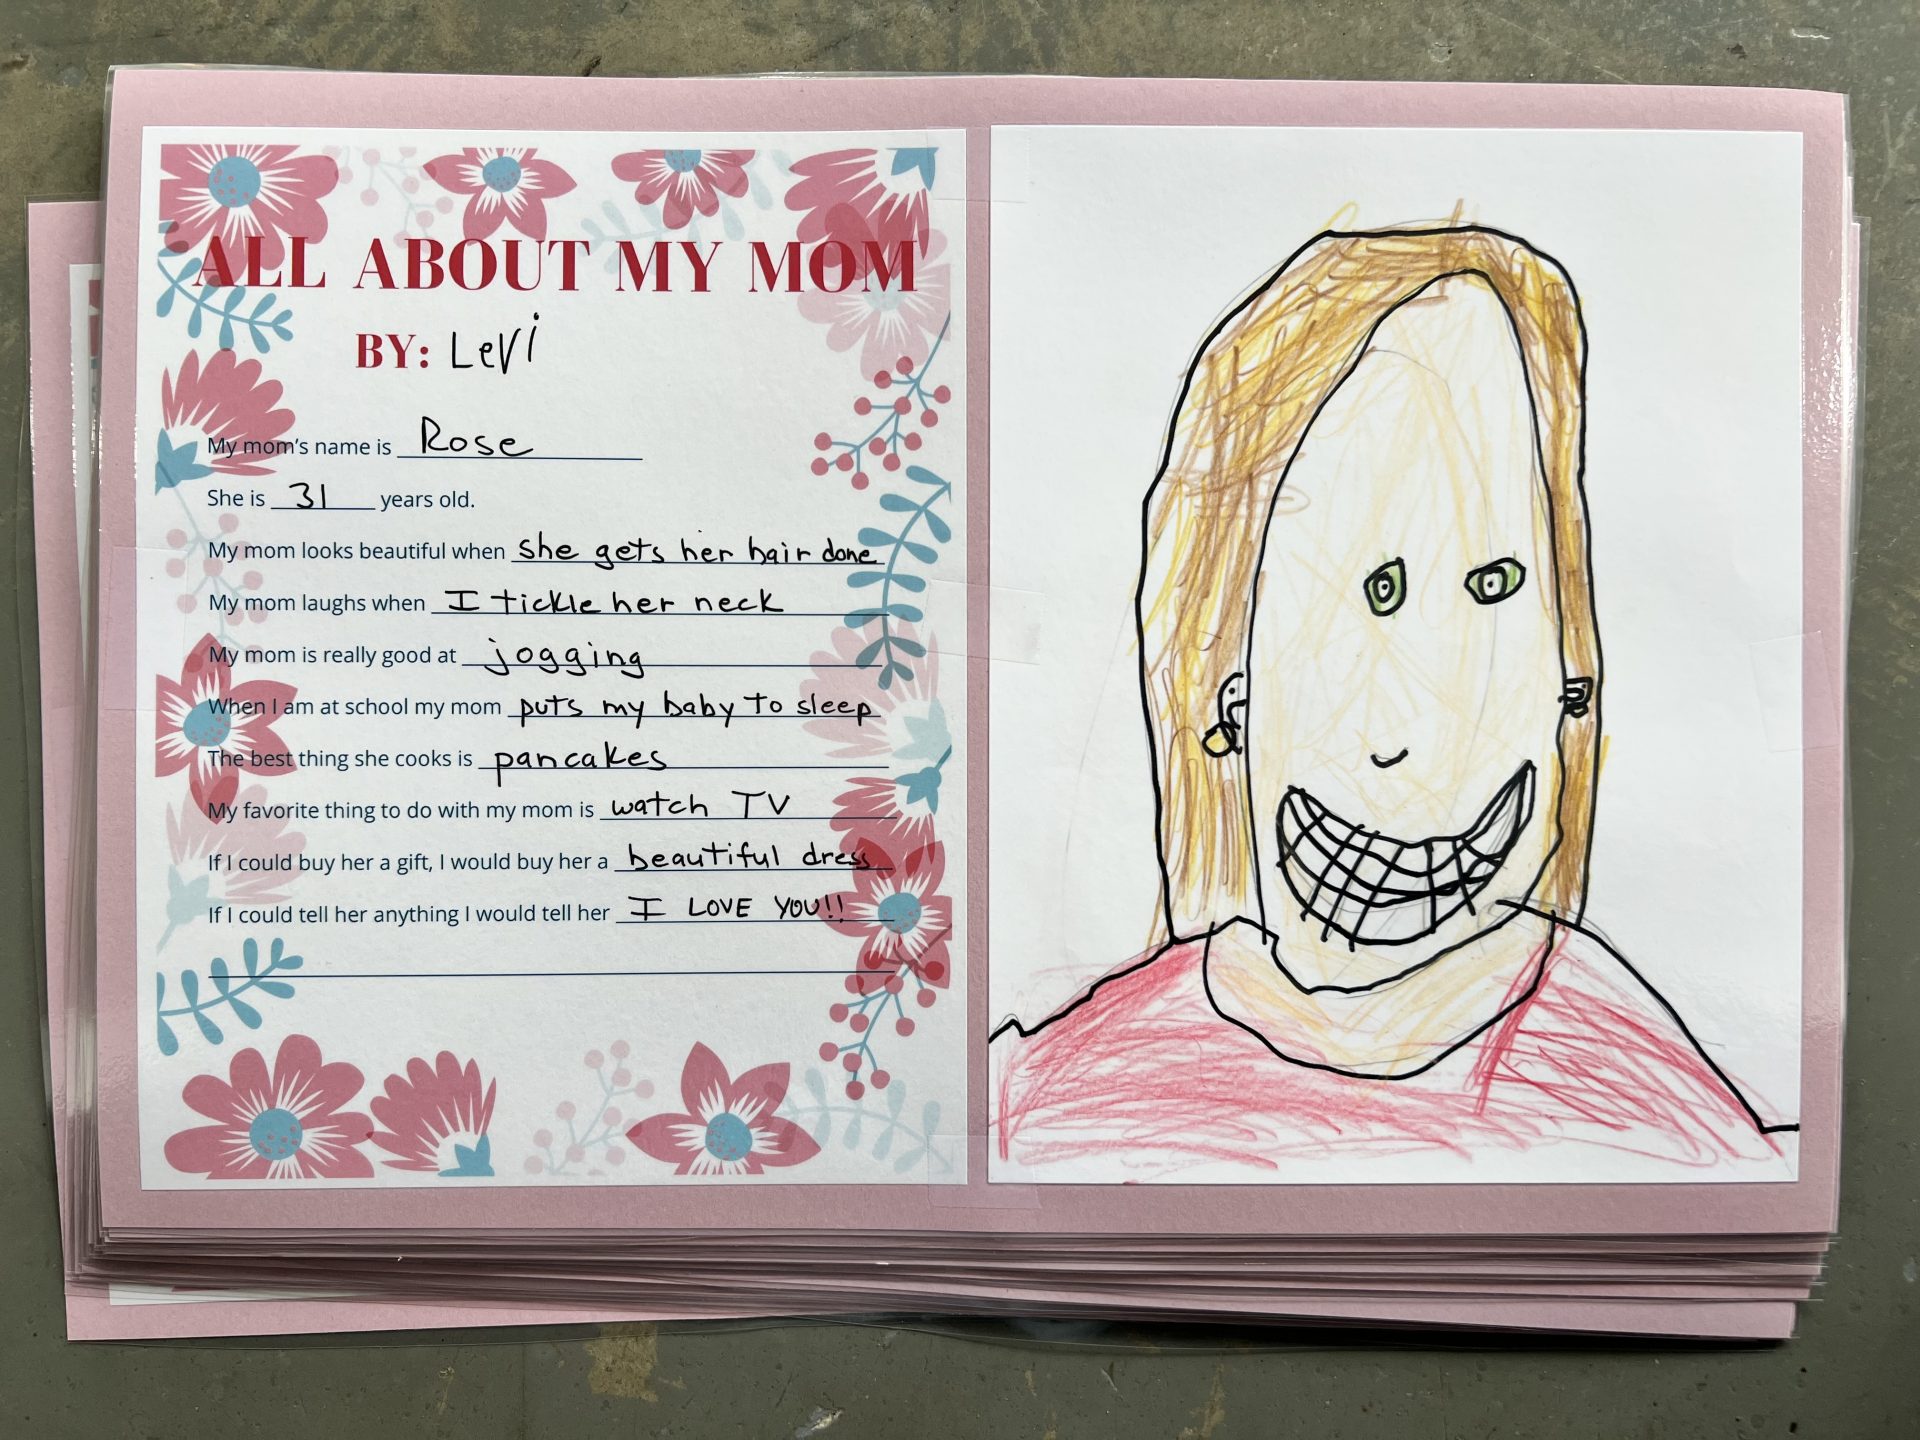 ALL ABOUT MY MOM
BY: Levi
My mom's name is Rose
She is 31 years old.
My mom looks beautiful when she gets her hair done
My mom laughs when I tickle her neck
My mom is really good at jogging
When I am at school my mom puts my baby to sleep
The best thing she cooks is pancakes
My favorite thing to do with my mom is watch TV
If I could buy her a gift, I would buy her a beautiful dress
If I could tell her anything I would tell her I LOVE YOU!!